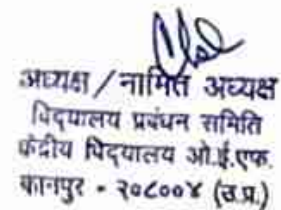 अध्यक्ष / नामित अध्यक्ष
विद्यालय प्रबंधन समिति
केंद्रीय विद्यालय ओ.ई.एफ.
कानपुर - २०८००४ (उ.प्र.)